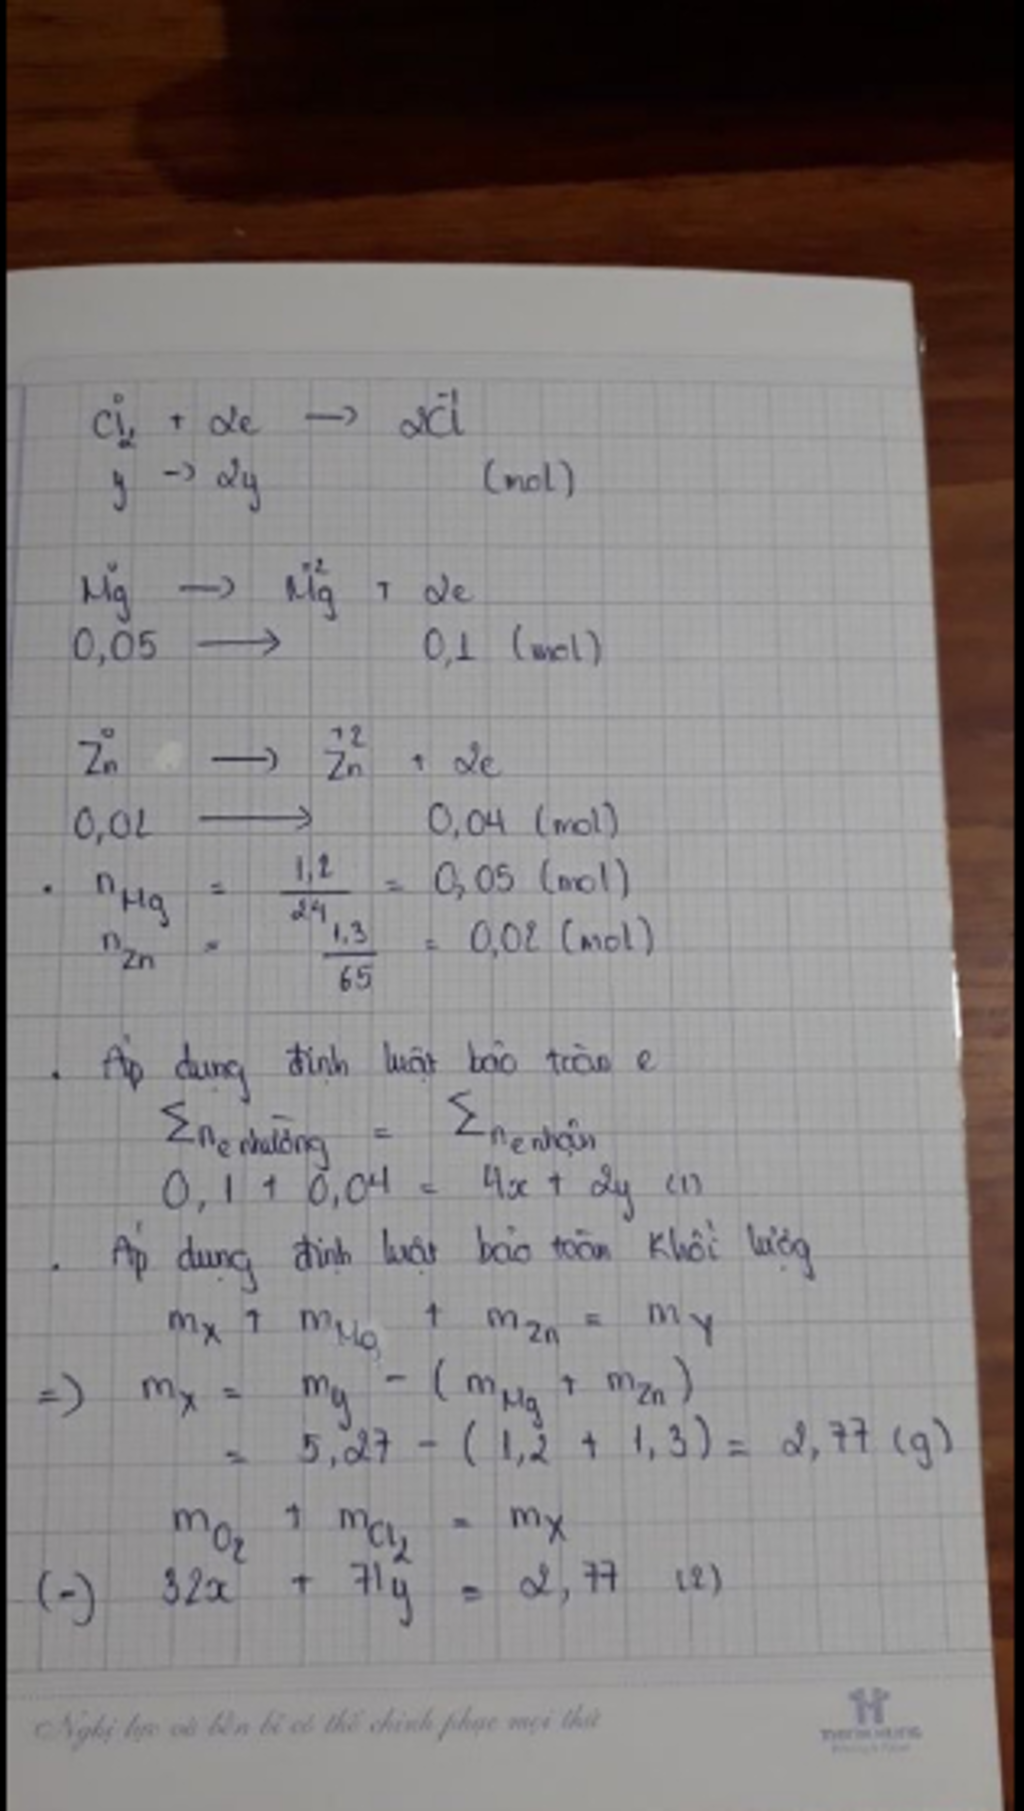 Cl₂⁰ + 2e → 2Cl⁻¹
y → 2y (mol)
Mg⁰ → Mg⁺² + 2e
0,05 → 0,1 (mol)
Zn⁰ → Zn⁺² + 2e
0,02 → 0,04 (mol)
. n_Mg = 1,2/24 = 0,05 (mol)
n_Zn = 1,3/65 = 0,02 (mol)
. Áp dụng định luật bảo toàn e
∑n_e nhường = ∑n_e nhận
0,1 + 0,04 = 4x + 2y (1)
. Áp dụng định luật bảo toàn khối lượng
m_X + m_Mg + m_Zn = m_Y
=) m_X = m_y - (m_Mg + m_Zn)
= 5,27 - (1,2 + 1,3) = 2,77 (g)
m_O₂ + m_Cl₂ = m_X
(-) 32x + 71y = 2,77 (2)
Nghị lực và bền bỉ có thể chinh phục mọi thứ